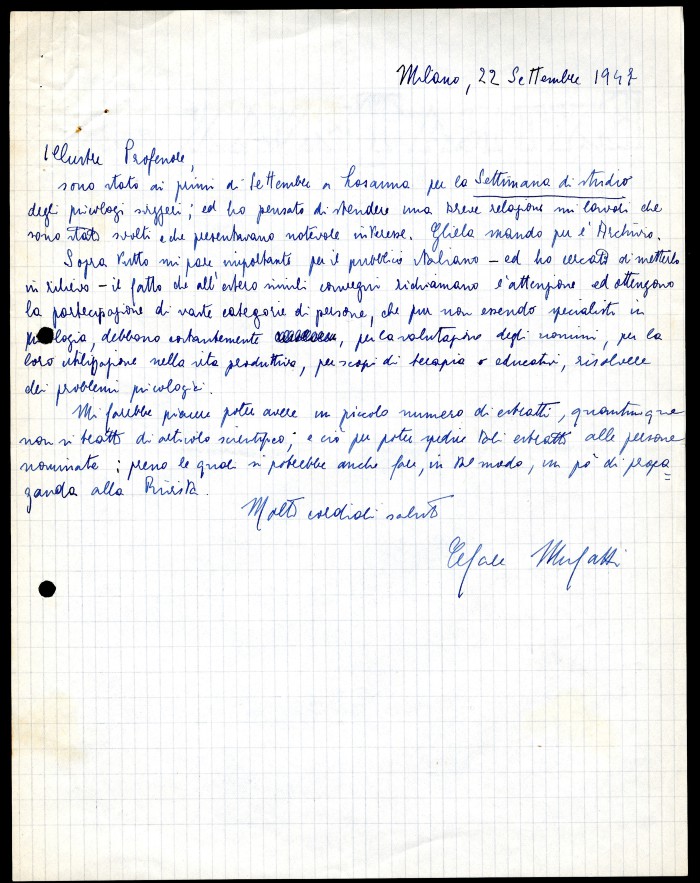 Milano, 22 Settembre 1947
Illustre Professore,
sono stato ai primi di Settembre a Losanna per la Settimana di studio
degli psicologi svizzeri; ed ho pensato di stendere una breve relazione sui lavori che
sono stati svolti e che presentavano notevole interesse. Gliela mando per l'Archivio.
Sopra tutto mi pare importante per il pubblico italiano - ed ho cercato di metterlo
in rilievo - il fatto che all'estero simili convegni richiamano l'attenzione ed ottengono
la partecipazione di varie categorie di persone, che pur non essendo specialisti in
psicologia, debbono costantemente, per la valutazione degli uomini, per la
loro utilizzazione nella vita produttiva, per scopi di terapia o educativi, risolvere
dei problemi psicologici.
Mi farebbe piacere poter avere un piccolo numero di estratti, quantunque
non si tratti di articolo scientifico; e ciò per poter spedire tali estratti alle persone
nominate; presso le quali si potrebbe anche fare, in tal modo, un pò di propa=
ganda alla Rivista.
Molti cordiali saluti
Cesare Musatti